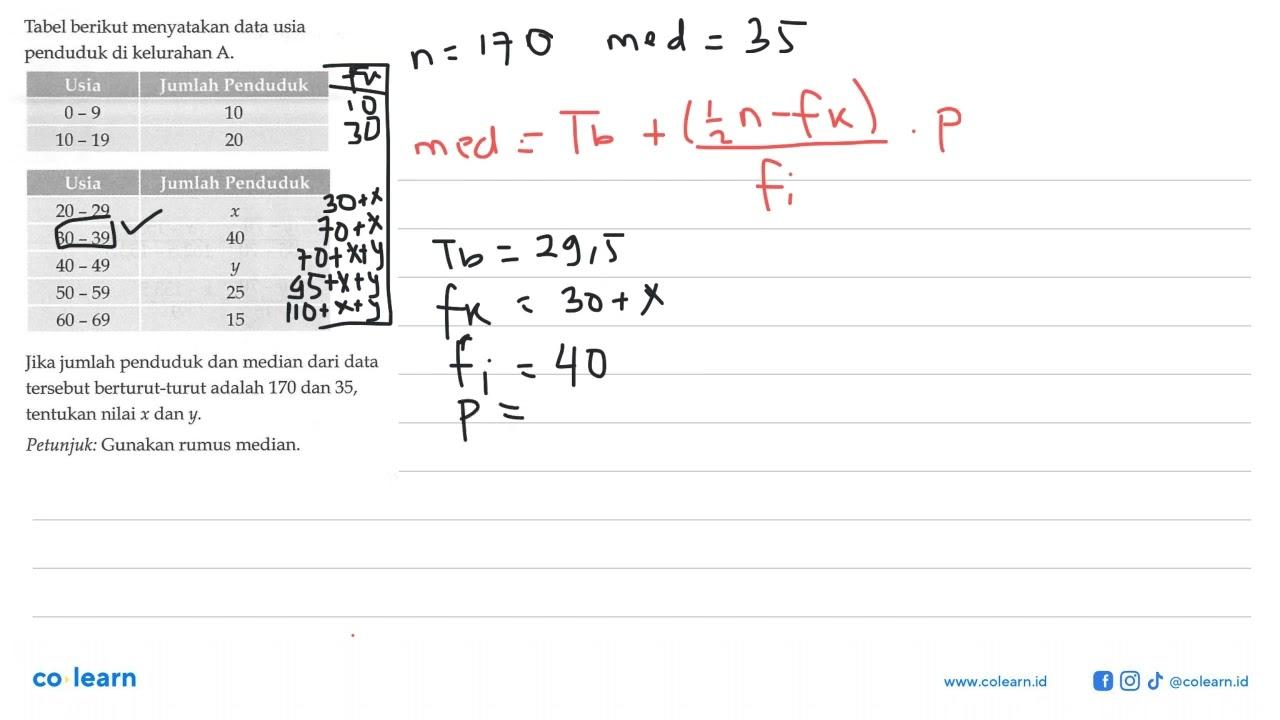 Tabel berikut menyatakan data usia
penduduk di kelurahan A.
Usia Jumlah Penduduk fk
0 – 9 10 10
10 – 19 20 30
Usia Jumlah Penduduk
20 – 29 x 30+x
30 – 39 40 70+x
40 – 49 y 70+x+y
50 – 59 25 95+x+y
60 – 69 15 110+x+y
Jika jumlah penduduk dan median dari data
tersebut berturut-turut adalah 170 dan 35,
tentukan nilai x dan y.
Petunjuk: Gunakan rumus median.
n = 170 med = 35
med = Tb + (1/2 n - fk) / fi . P
Tb = 29,5
fk = 30 + x
fi = 40
P =
co learn
www.colearn.id
@colearn.id